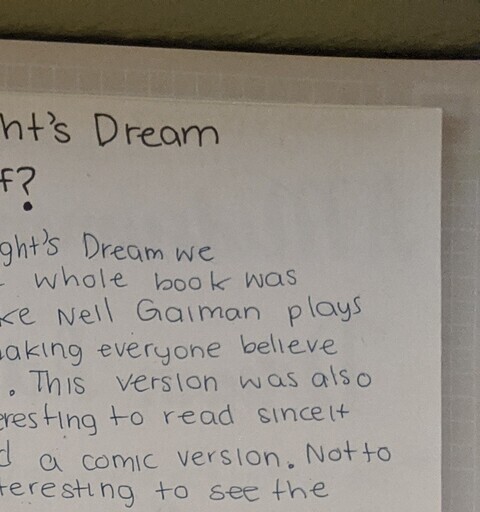 ht's Dream
f?
ght's Dream we
whole book was
ke Neil Gaiman plays
aking everyone believe
. This version was also
eresting to read since it
d a comic version. Not to
teresting to see the